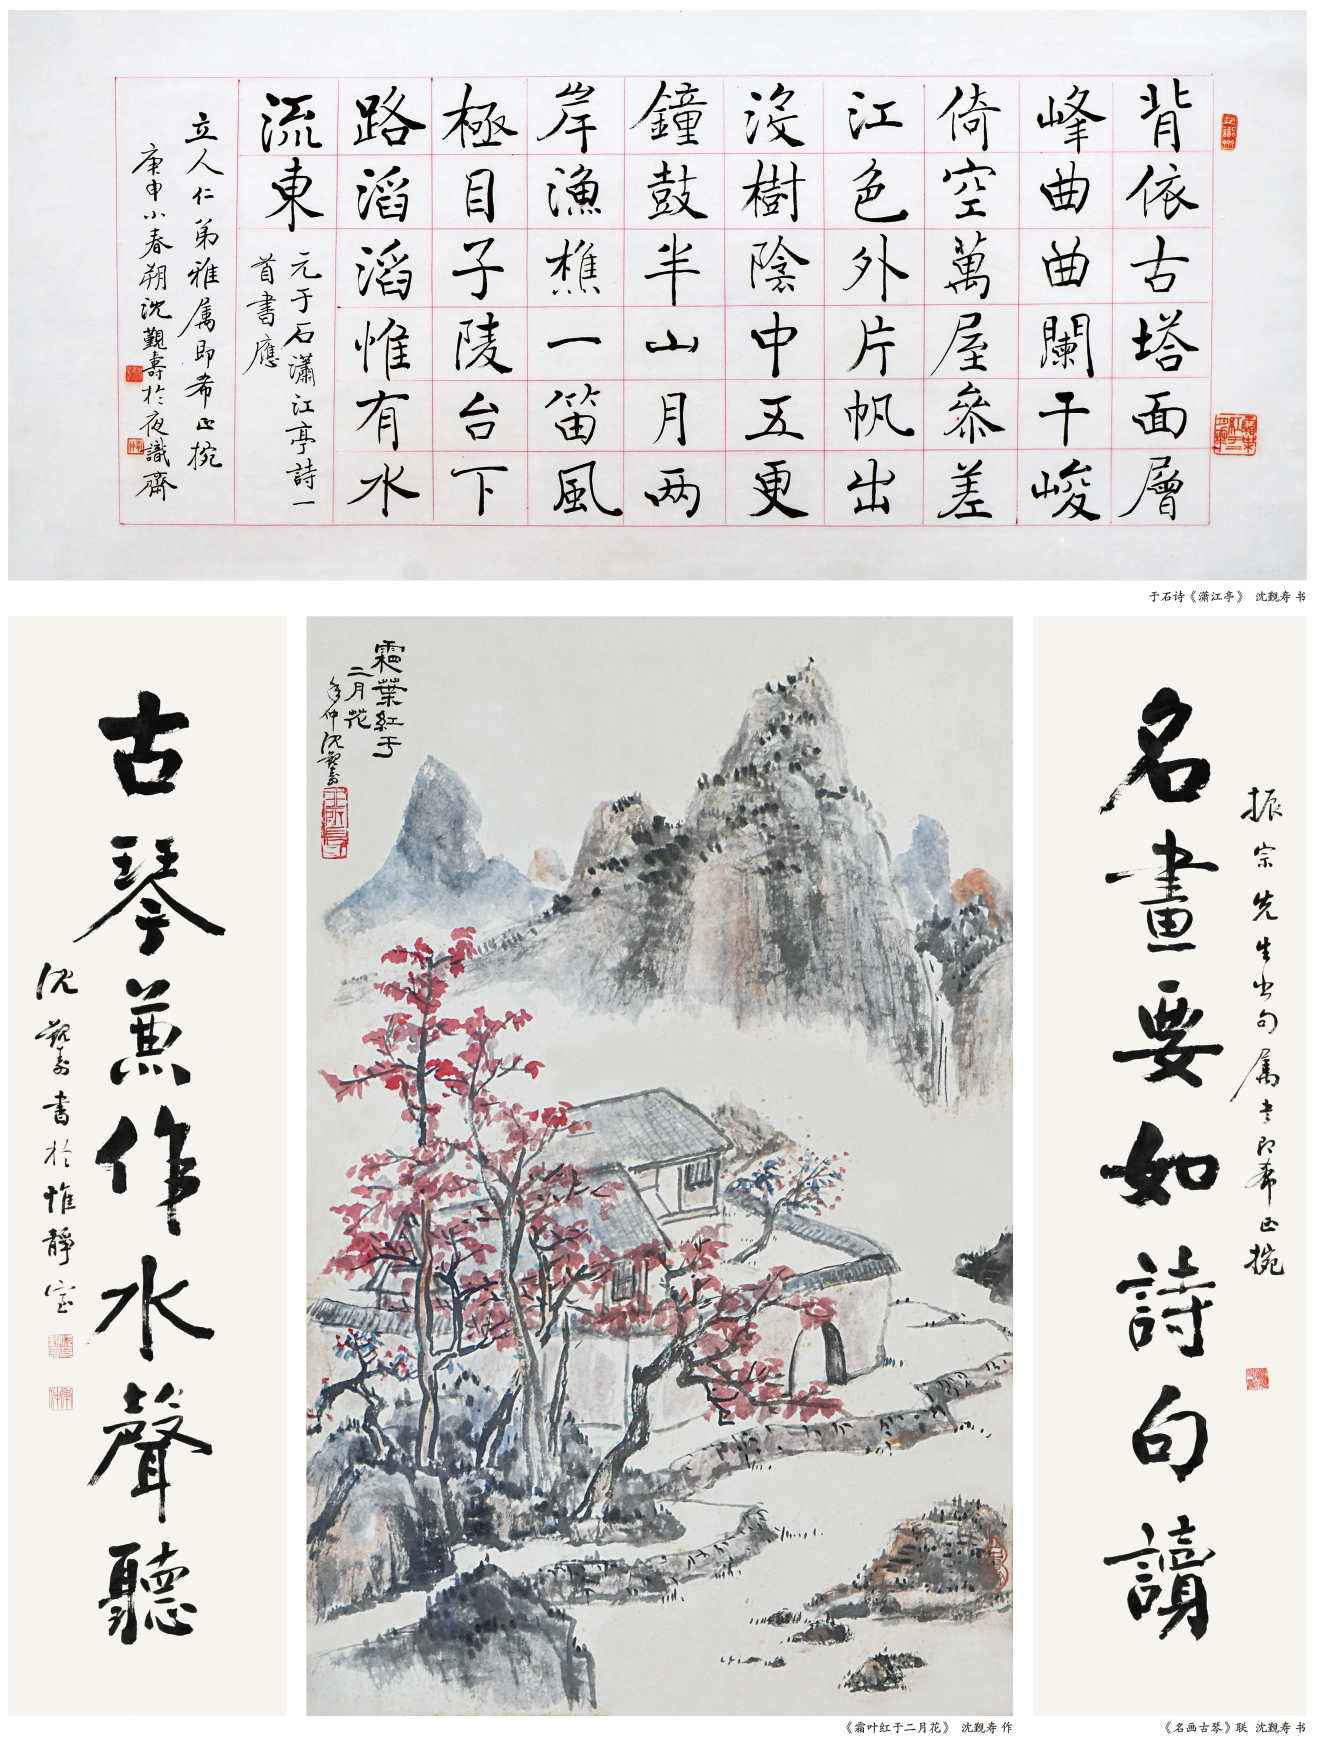 背依古塔面層
峰曲曲闌干峻
倚空萬屋參差
江色外片帆出
沒樹陰中五更
鐘鼓半山月两
岸漁樵一笛風
極目子陵台下
路滔滔惟有水
流東
元于石瀟江亭詩一
首書應
立人仁弟雅属即希正捥
庚申小春朔沈覲壽於夜識齋
于石诗《潇江亭》 沈觐寿 书
名畫要如詩句讀
振宗先生出句属書即希正捥
古琴兼作水聲聽
沈覲壽書於惟靜室
霜葉紅于
二月花
年仲沈覲壽
《霜叶红于二月花》 沈觐寿 作
《名画古琴》联 沈觐寿 书